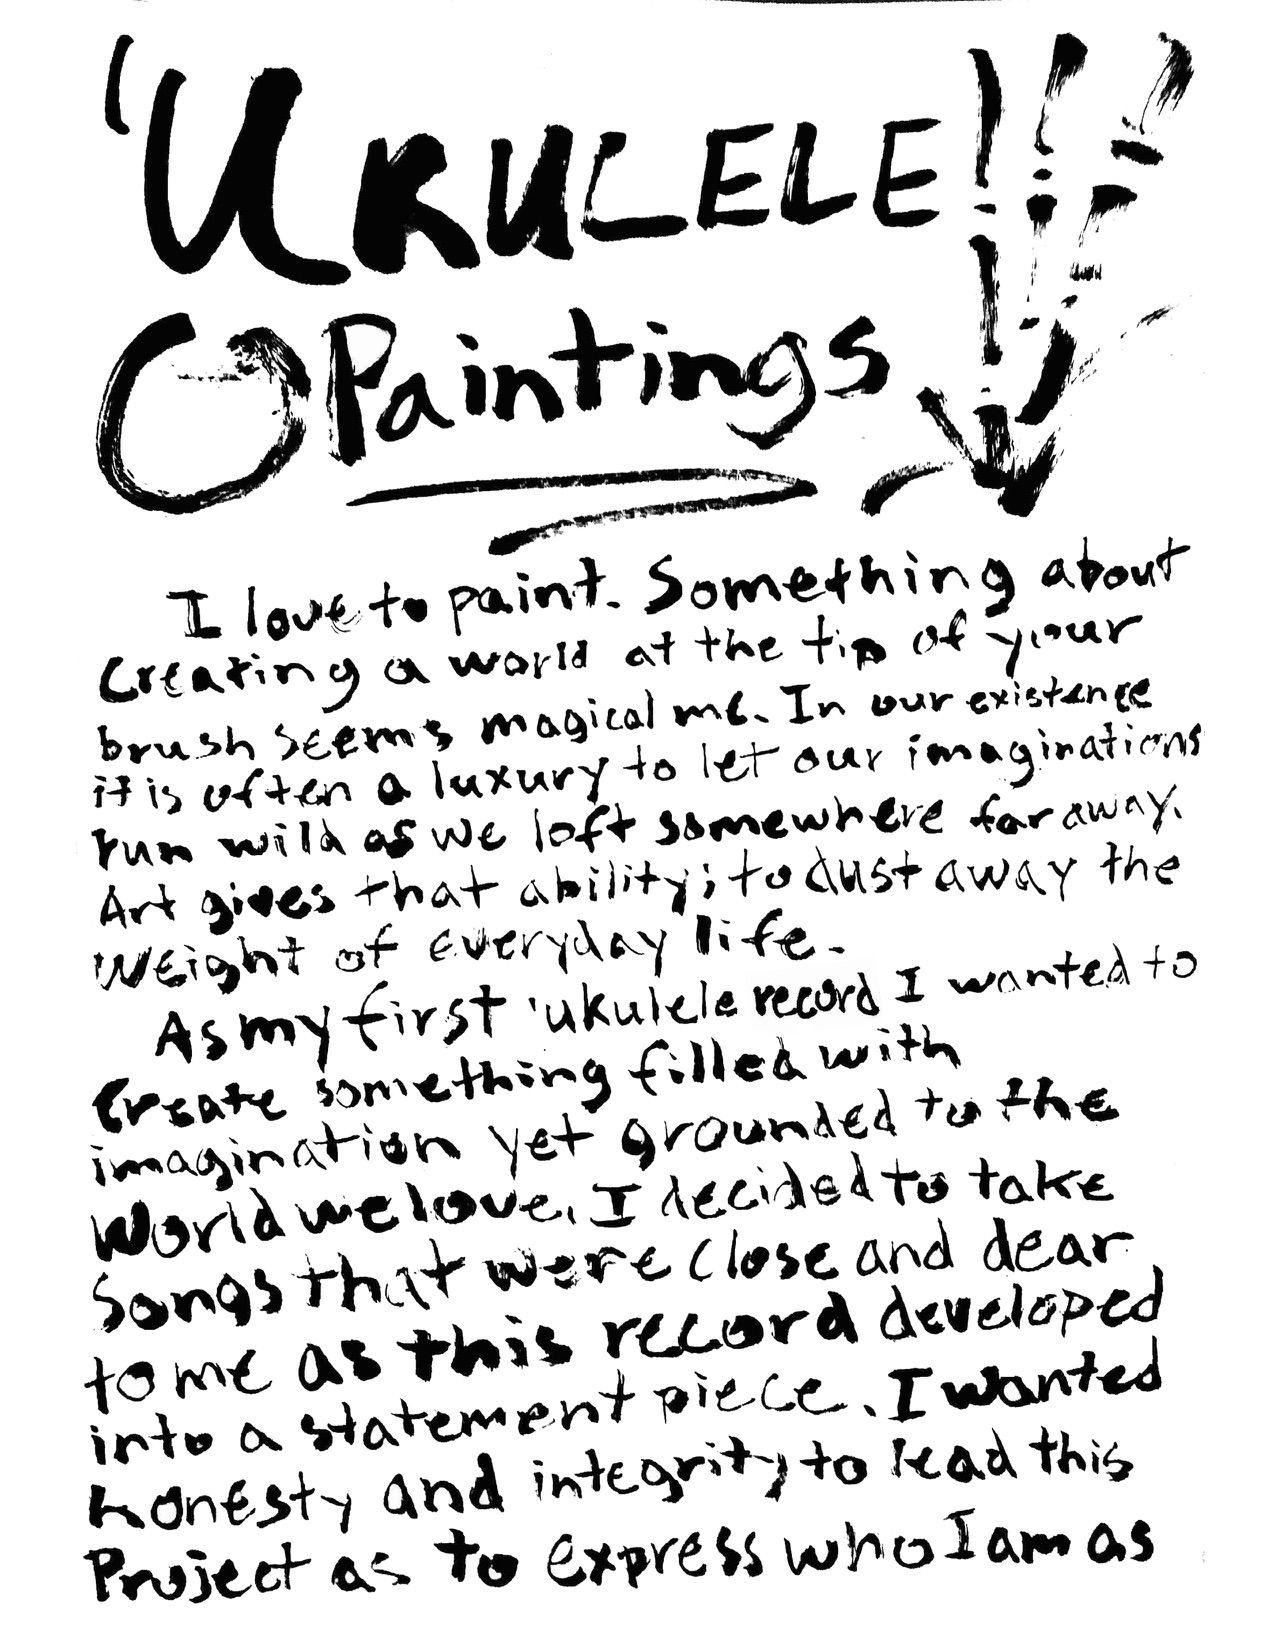 'UKULELE!!!
Paintings
I love to paint. Something about
creating a world at the tip of your
brush seems magical me. In our existence
it is often a luxury to let our imaginations
run wild as we loft somewhere far away.
Art gives that ability; to dust away the
weight of everyday life.
As my first 'ukulele record I wanted to
create something filled with
imagination yet grounded to the
world we love. I decided to take
songs that were close and dear
to me as this record developed
into a statement piece. I wanted
honesty and integrity to lead this
Project as to express who I am as